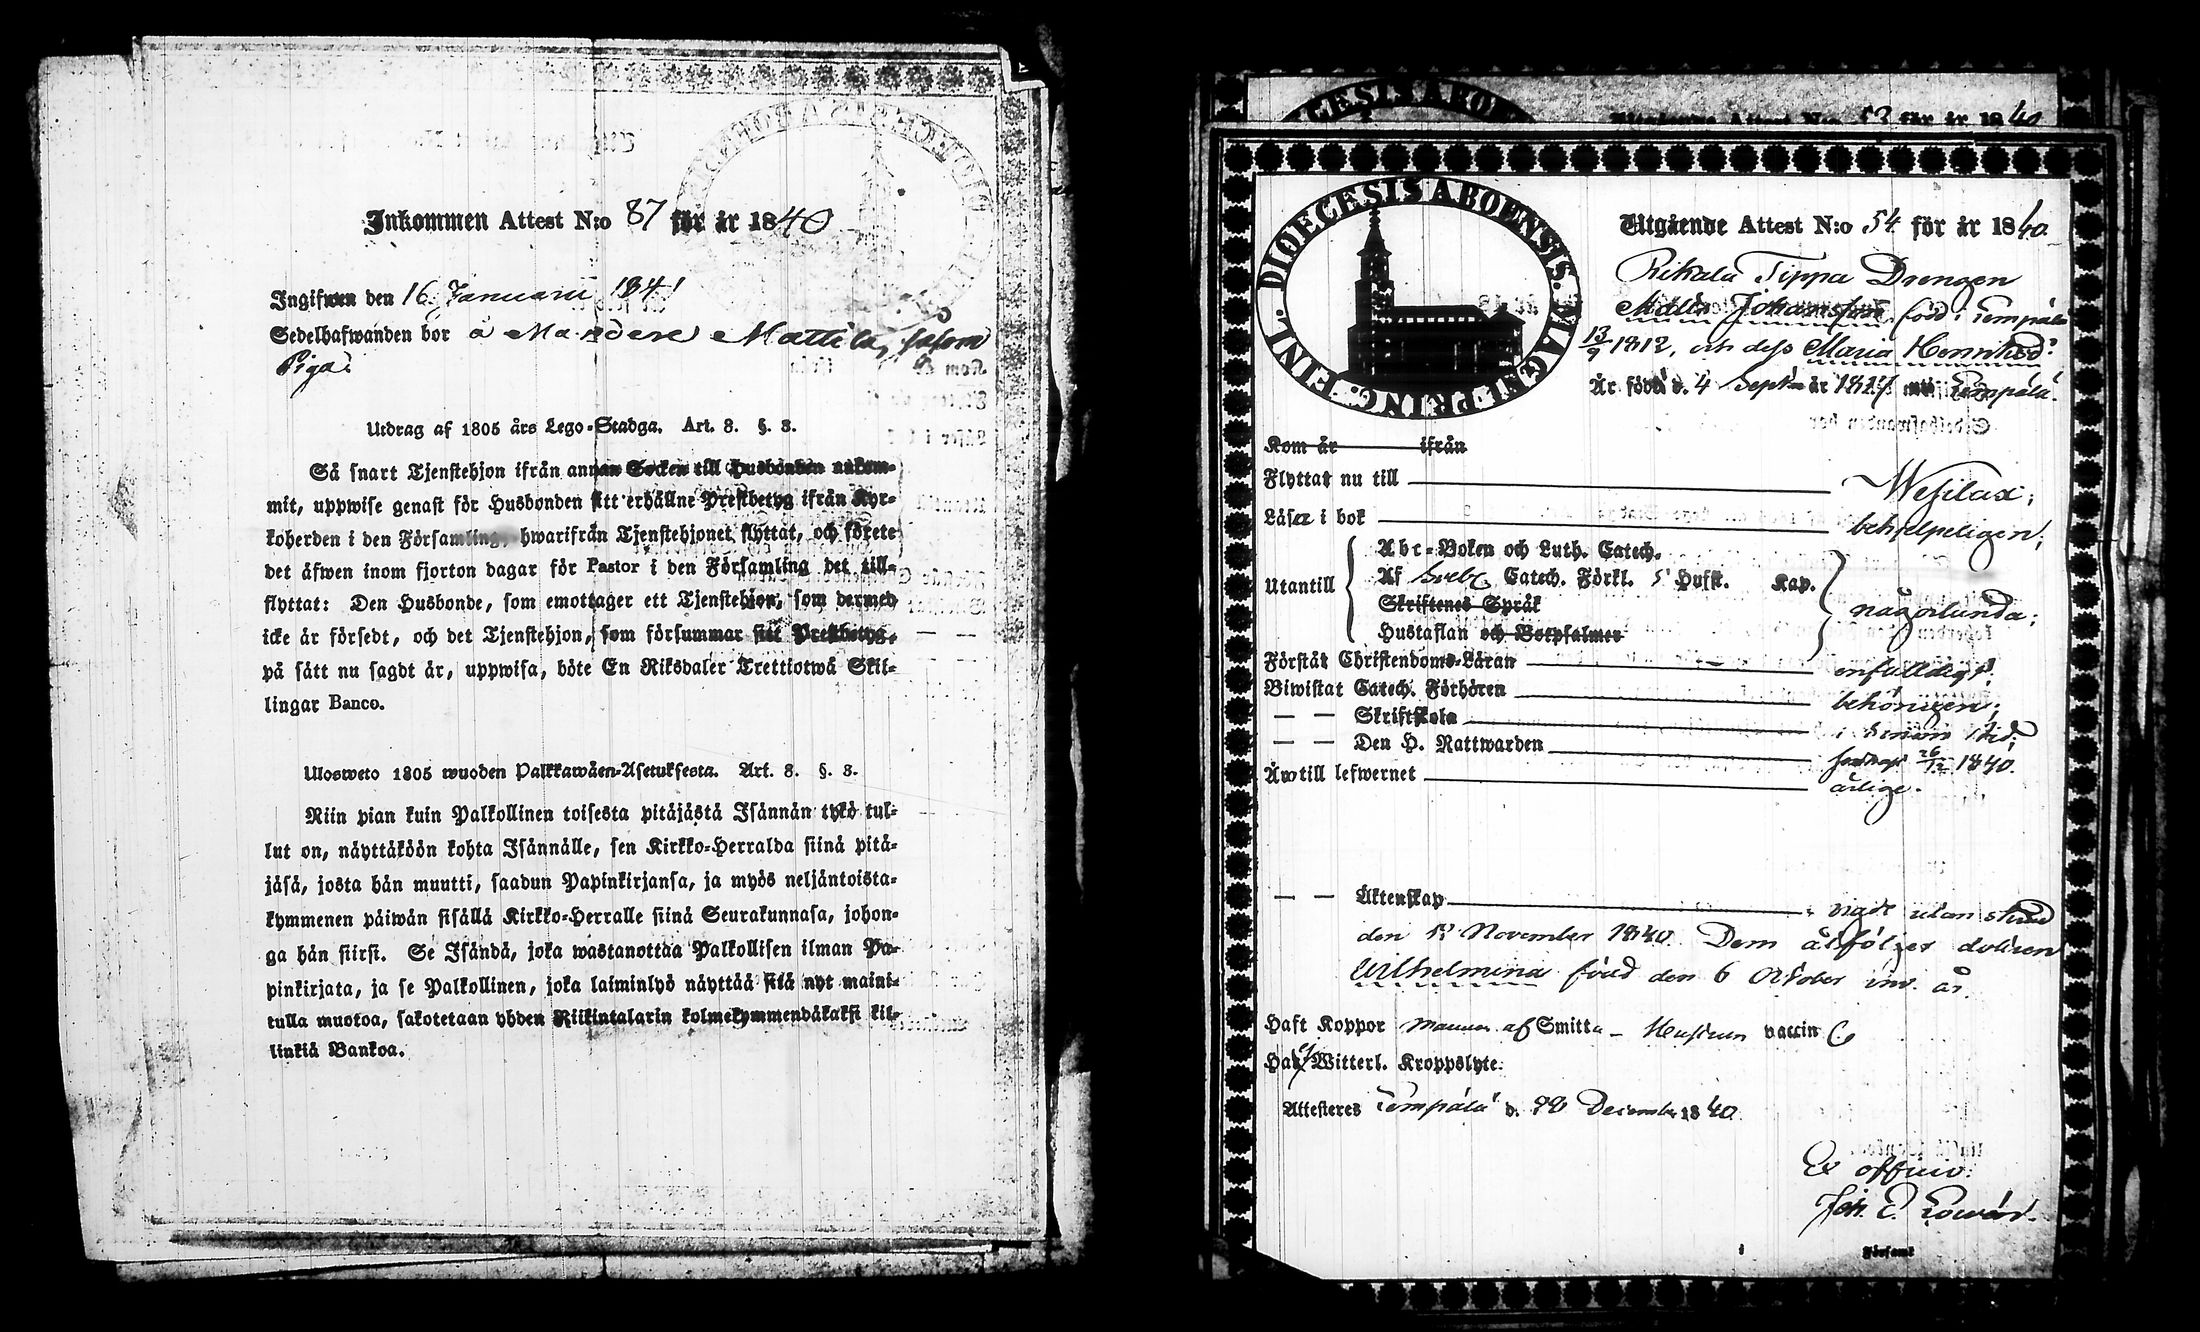 Inkommen Attest N:o 87 för år 1840
Ingifwen den 16 Januarii 1841
Sedelhafwanden bor å Mattila, såsom
Piga.
Utdrag af 1805 års Lego-Stadga. Art. 8. §. 3.
Så snart Tjenstehjon ifrån annan Socken till Husbonden ankom-
mit, uppwise genast för Husbonden sitt erhållne Prestbetyg ifrån Kyr-
koherden i den Församling, hwarifrån Tjenstehjonet flyttat, och förete
det äfwen inom fjorton dagar för Pastor i den Församling det till-
flyttat: Den Husbonde, som emottager ett Tjenstehjon, som dermed
icke är försedt, och det Tjenstehjon, som försummar sitt Prestbetyg,
på sätt nu sagdt är, uppwisa, böte En Riksdaler Trettiotwå Skil-
lingar Banco.
Ulosweto 1805 wuoden Palkkawäen-Asetuksesta. Art. 8. §. 3.
Niin pian kuin Palkollinen toisesta pitäjästä Isännän tykö tul-
lut on, näyttäköön kohta Isännälle, sen Kirkko-Herralda siinä pitä-
jäsä, josta hän muutti, saadun Papinkirjansa, ja myös neljäntoista-
kymmenen päiwän sisällä Kirkko-Herralle siinä Seurakunnasa, johon-
ga hän siirsi. Se Isändä, joka wastanottaa Palkollisen ilman Pa-
pinkirjata, ja se Palkollinen, joka laiminlyö näyttää sitä nyt maini-
tulla muotoa, sakotetaan yhden Riikintalarin kolmekymmendäkaksi kil-
linkiä Bankoa.
DIOECESIS ABOENSIS
53 för år 1840
DIOECESIS ABOENSIS. MAGNI PRINC. FINL.
Utgående Attest N:o 54 för år 1840
Tippa Drengen
Johansson, född i Lempälä
13/9 1812, och dess Maria Henriksd:r
Är född d. 4 Septemb år 18 uti Lempälä.
Kom år ifrån
Flyttat nu till Wesilax;
Läser i bok behjelpeligen;
Utantill
Abc-Boken och Luth. Catech.
Af Sveb. Catech. Förkl. 5 Hufst. Kap.
Skriftenes Språk
Hustaflan och Botpsalmer
någorlunda;
Förstår Christendoms-Läran enfaldigt;
Biwistat Catech. Förhören behörigen;
— — Skriftskola i sinom tid;
— — Den H. Nattwarden 26/12 1840.
Äwtill lefwernet ärlige.
— — Äktenskap wigde utan
den November 1840. Dem åtföljer dottren
Wilhelmina född den 6 October inv. år.
Haft Koppor af Smitta – Hustrun vaccin
Haf Witterl. Kroppslyte.
Attesteres Lempälä d. December 1840.
Ex officio:
Joh. E.